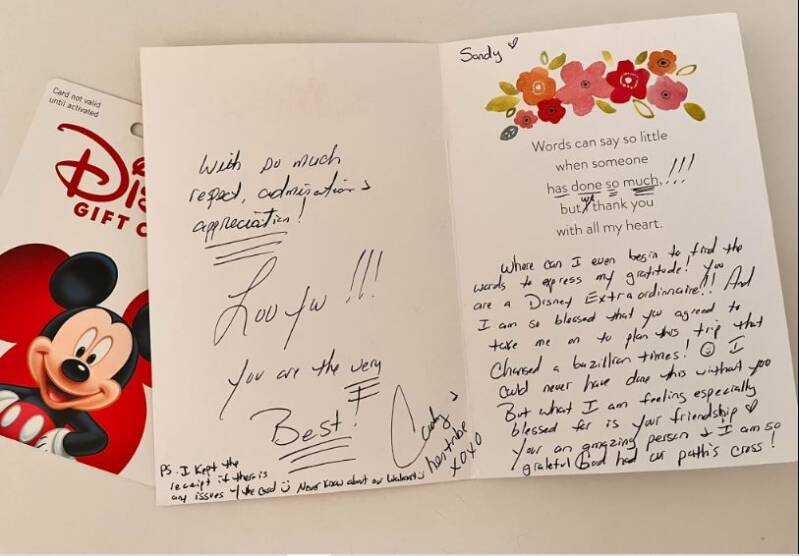 Card not valid
until activated
Dis
GIFT C
With so much
respect, admiration &
appreciation!
Love you!!!
You are the very
Best!
Candy &
her tribe
xoxo
PS. I kept the
receipt if there is
any issues w/ the card Never know about our Walmart
Sandy
Words can say so little
when someone
has done so much,!!!
but we thank you
with all my heart.
Where can I even begin to find the
words to express my gratitude! You
are a Disney Extraordinnaire!! And
I am so blessed that you agreed to
take me on to plan this trip that
Changed a bazillion times! I
Could never have done this without you
But what I am feeling especially
blessed for is your friendship
Your an amazing person & I am so
grateful God had our path's cross!